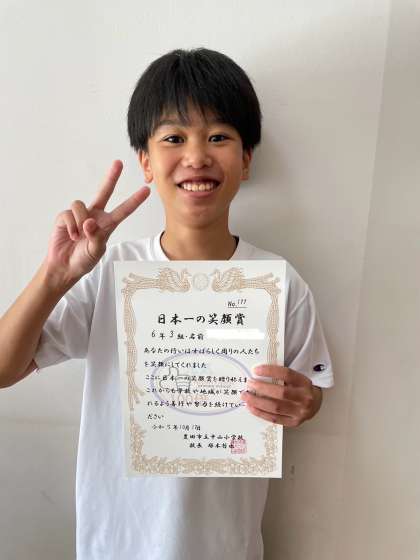 No.177
日本一の笑顔賞
6年3組・名前
あなたの行いはすばらしく周りの人たち
を笑顔にしてくれました
ここに日本一の笑顔賞を贈り称えま
これからも学校や地域が笑顔で
れるよう善行や努力を続けていっ
ださい
令和5年10月17日
豊田市立中山小学校
校長